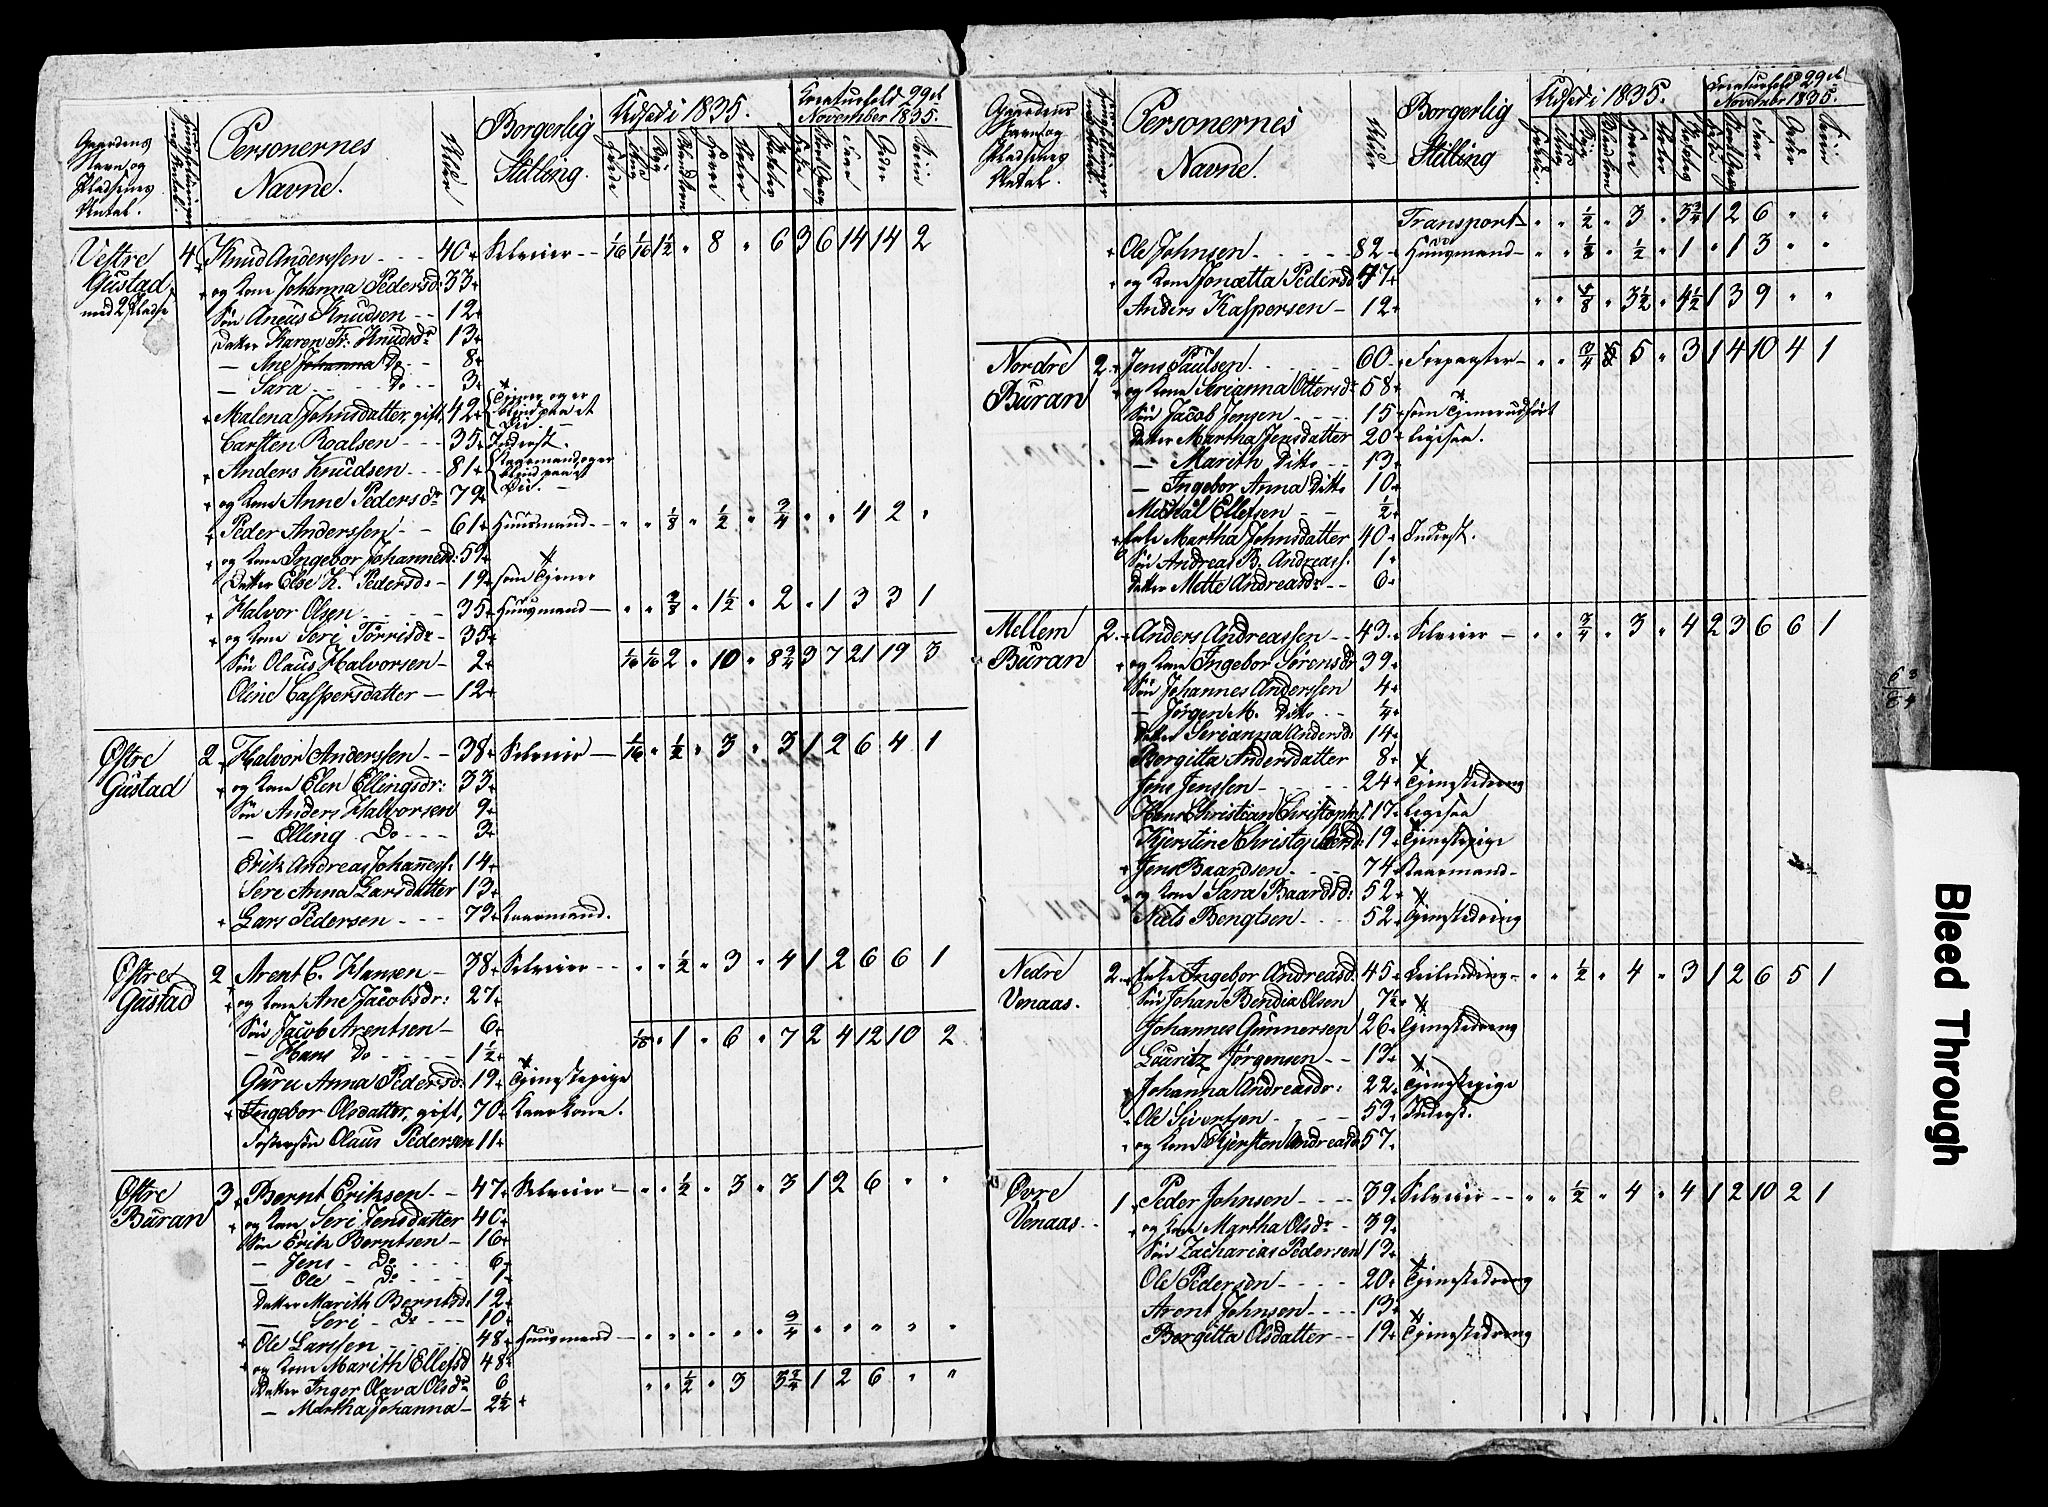 Gaardens Navn og Pladsens Antal.
Personernes Navne.
Alder
Borgerlig Stilling.
Udsæd i 1835.
Kreaturhold 29de November 1835.
Vestre Gustad med 2 Pladse 4 Knud Anderssen 40 Selveier 1/16 1/16 1½ " 8 " 6 3 6 14 14 2
og Kone Johanna Pedersd: 33
Søn Aneus Knudsen 12
Datter Karen Fr: Knudsdr 13
— Ane Johanna Do 8
— Sara Do 3
Malena Johnsdatter, gift, 42 Tjener og er blind paa et Øie.
Carsten Roalsen 35 Inderst.
Anders Knudsen 81 Kaarmand, og er blind paa et Øie.
og Kone Anne Pedersdr 79
Peder Anderssen 61 Huusmand " " 1/8 " ½ " ¾ " " 4 2 "
og Kone Ingebor Johannesd: 59
Datter Else K. Pedersdr 19 som Tjener
Halvor Olsen 35 Huusmand " " 3/8 " 1½ " 2 " 1 3 3 1
og Kone Seri Tørrisdr 35
1/16 1/16 2 " 10 " 8¾ 3 7 21 19 3
Søn Olaus Halvorsen 2
Oline Caspersdatter 12
Østre Gustad 2 Halvor Anderssen 38 Selveier 1/16 " ½ " 3 " 3 1 2 6 4 1
og Kone Elen Ellingsdr: 33
Søn Anders Halvorsen 9
— Elling Do 3
Erik Andreas Johanness: 14
Sere Anna Larsdatter 13
Lars Pedersen 73 Kaarmand.
Østre Gustad 2 Arent C. Hansen 38 Selveier " " ½ " 3 " 4 1 2 6 6 1
og Kone Ane Jacobsdr: 27
Søn Jacob Arentsen 6
1/16 " 1 " 6 " 7 2 4 12 10 2
— Hans Do 1½
Guru Anna Pedersd: 19 Tjenestepige
Ingebor Olsdatter, gift, 70 Kaarkone.
Fostersøn Olaus Pedersen 11
Østre Buran 3 Bernt Eriksen 47 Selveier " " ½ " 3 " 3 1 2 6 " "
og Kone Seri Jensdatter 40
Søn Erik Berntsen 16
— Jens Do 6
— Ole Do 1
Datter Marith Berntsd: 12
— Seri Do 10
Ole Larssen 48 Huusmand " " " " " " ¾ " " " " "
og Kone Marith Ellefsd 48
Datter Inger Olava Olsdr 6
" " ½ " 3 3¾ 1 2 6 " "
— Martha Johanna 2½
Gaardens Navn og Pladsens Antal.
Personernes Navne.
Alder
Borgerlig Stilling
Udsæd i 1835.
Kreaturhold 29de November 1835.
Transport " " ½ " 3 " 3¾ 1 2 6 " "
Ole Johnsen 82 Huusmand " " 1/8 " ½ " 1 " 1 3 " "
og Kone Jonetta Pedersd 47
Anders Kaspersen 12
" " 5/8 " 3½ " 4½ 1 3 9 " "
Nordre Buran 2 Jens Paulsen 60 Forpagter " " ¾ 5 " 3 1 4 10 4 1
og Kone Serianna Ottersdr 58
Søn Jacob Jensen 15 som Tjener udført
Datter Martha Jensdatter 20 ligesaa.
— Marith Ditto 13
— Ingebor Anna Ditto 10
Michal Ellefsen ½
Enke Martha Johnsdatter 40 Inderst.
Søn Andreas B. Andreass: 1
Datter Mette Andreasdr 6
Mellem Buran 2 Anders Andreassen 43 Selveier " " ¾ " 3 " 4 2 3 6 6 1
og Kone Ingebor Sørensdr 39
Søn Johannes Anderssen 4
— Jørgen M. Ditto ¼
Datter Serianna Andersd: 14
Borgitta Andersdatter 8
Jens Jenssen 24 Tjenestedreng
Hans Christian Christophs: 17 Ligesaa
Kjerstine Christophersd: 19 Tjenestepige
Jens Baardsen 74 Kaarmand
og Kone Sara Baardsd: 52
Niels Bengtsen 52 Tjenestedreng
Nedre Venaas. 2 Enke Ingebor Andreasd: 45 Leilending " " ½ " 4 " 3 1 2 6 5 1
Søn Johan Bendix Olsen 7½
Johannes Gunnersen 26 Tjenestedreng
Lauritz Jørgensen 13
Johanna Andreasdr: 22 Tjenestepige
Ole Sivertsen 53 Inderst.
og Kone Kjersten Andreasd 57
Øvre Venaas. 1 Peder Johnsen 39 Selveier " " ½ " 4 " 4 1 2 10 2 1
og Kone Martha Olsdr 39
Søn Zacharias Pedersen 13
Ole Pedersen 20 Tjenestedreng
Arent Johnsen 13
Borgitta Olsdatter 19 Tjenestedreng
Bleed Through